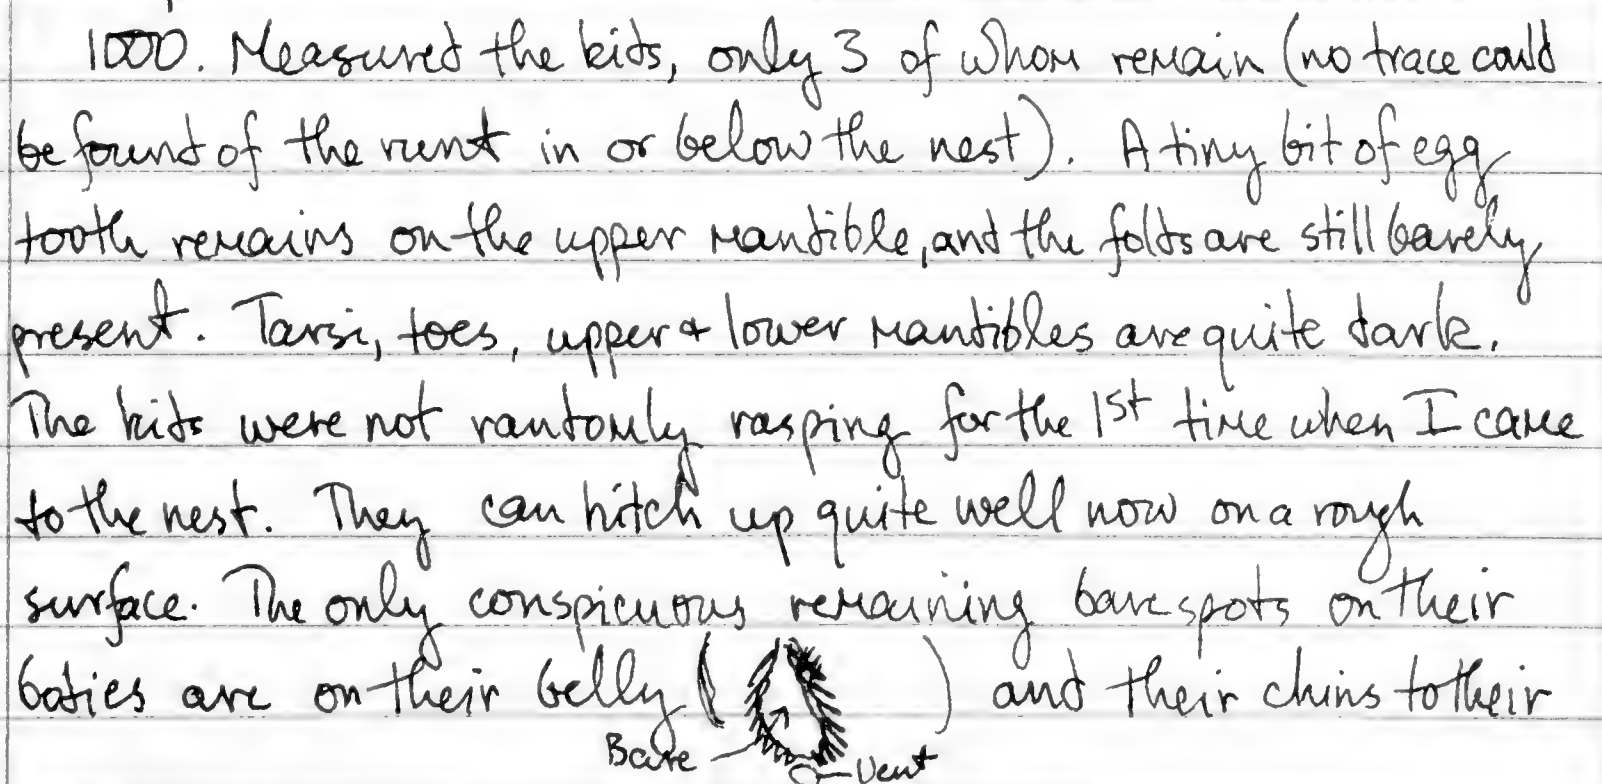 1000. Measured the kids, only 3 of whom remain (no trace could
be found of the runt in or below the nest). A tiny bit of egg
tooth remains on the upper mandible, and the folds are still barely
present. Tarsi, toes, upper & lower mandibles are quite dark.
The kids were not randomly rasping for the 1st time when I came
to the nest. They can hitch up quite well now on a rough
surface. The only conspicuous remaining bare spots on their
bodies are on their belly ( ) and their chins to their
Bare
Vent